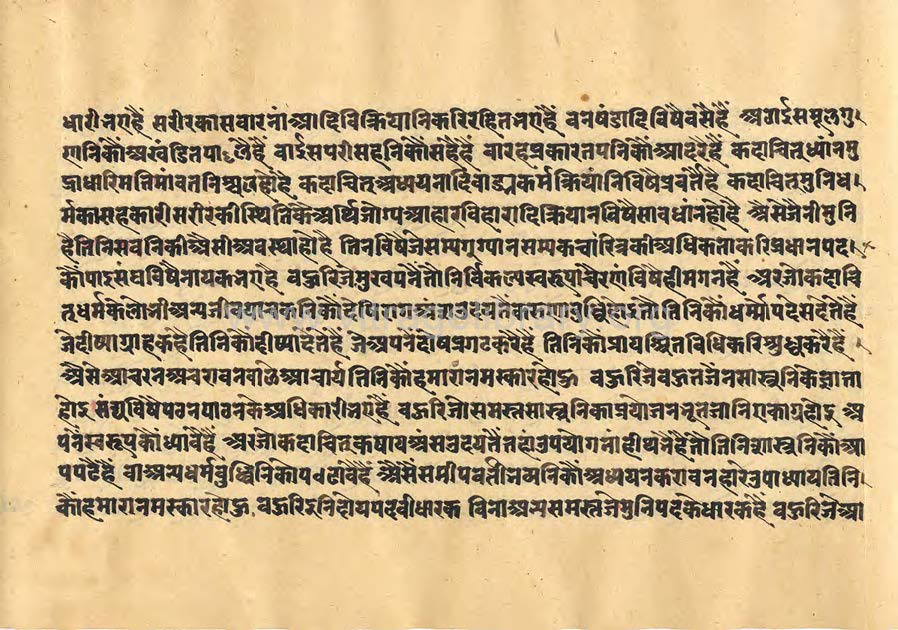 धारी भए हैं सरीर का सवारनां आदि विक्रियानि करि रहित भए हैं वनषंडादि विषै वसै हैं अठाईस मूल गु
णनि कौं अखंडित पालै हैं वाईस परीसहनि कौं सहै हैं बारह प्रकार तपनि कौं आदरै हैं कदाचित् ध्यांन मु
द्रा धारि प्रतिमावत् निश्चल हो है कदाचित् अध्ययनादि वाह्य कर्म क्रियांनि विषै प्रवर्तै है कदाचित् मुनि ध
र्म का सहकारी सरीर की स्थिति कै अर्थि जोग्य आहार विहारादि क्रियान विषै सावधांन हो है अैसे जैनी मुनि
है तिनि सवनि की अैसी अवस्था हो है तिन विषै जे सम्यग्ग्यान सम्यक चारित्र की अधिकता करि प्रधान पद
कौं पाइ संघ विषै नायक भए है वहुरि जे मुख्यपनैं तौ निर्विकल्प स्वरूपाचरण विषै ही मगन है अर जो कदाचि
त् धर्म के लोभी अन्य जीव तिनि कौं देखि राग अंस उदय तैं करुणा बुद्धि होइ तौ तिनि कौं धर्मोपदेस देते हैं
जे दीष्या ग्राहक है तिनि कौं दीष्या देते हैं जे अपनें दोष प्रगट करै हैं तिनि कौं प्रायश्चित विधि करि शुद्ध करै हैं
अैसे आचरन अचरावन वाले आचार्य तिनि कौं हमारा नमस्कार होऊ वहुरि जे वहुत जैन सास्त्रनि के ज्ञाता
होइ संघ विषै पठन पाठन के अधिकारी भए हैं वहुरि जो समस्त सास्त्रनि का प्रयोजन भूत जानि एकाग्र होइ अ
पनें स्वरूप कौं ध्यावै हैं अर जो कदाचित् कषाय अंस उदय तैं तहां उपयोग नांही थंभै है तौ तिनि शास्त्रनि कौं आ
प पढै हैं वा अन्य धर्म बुद्धिनि कौं पढावै हैं अैसे समीपवर्ती भव्यनि कौं अध्ययन करावन हारे उपाध्याय तिनि
कौं हमारा नमस्कार होऊ वहुरि इनि दोय पदवी धारक विना अन्य समस्त जे मुनि पद के धारक हैं वहुरि जे आ